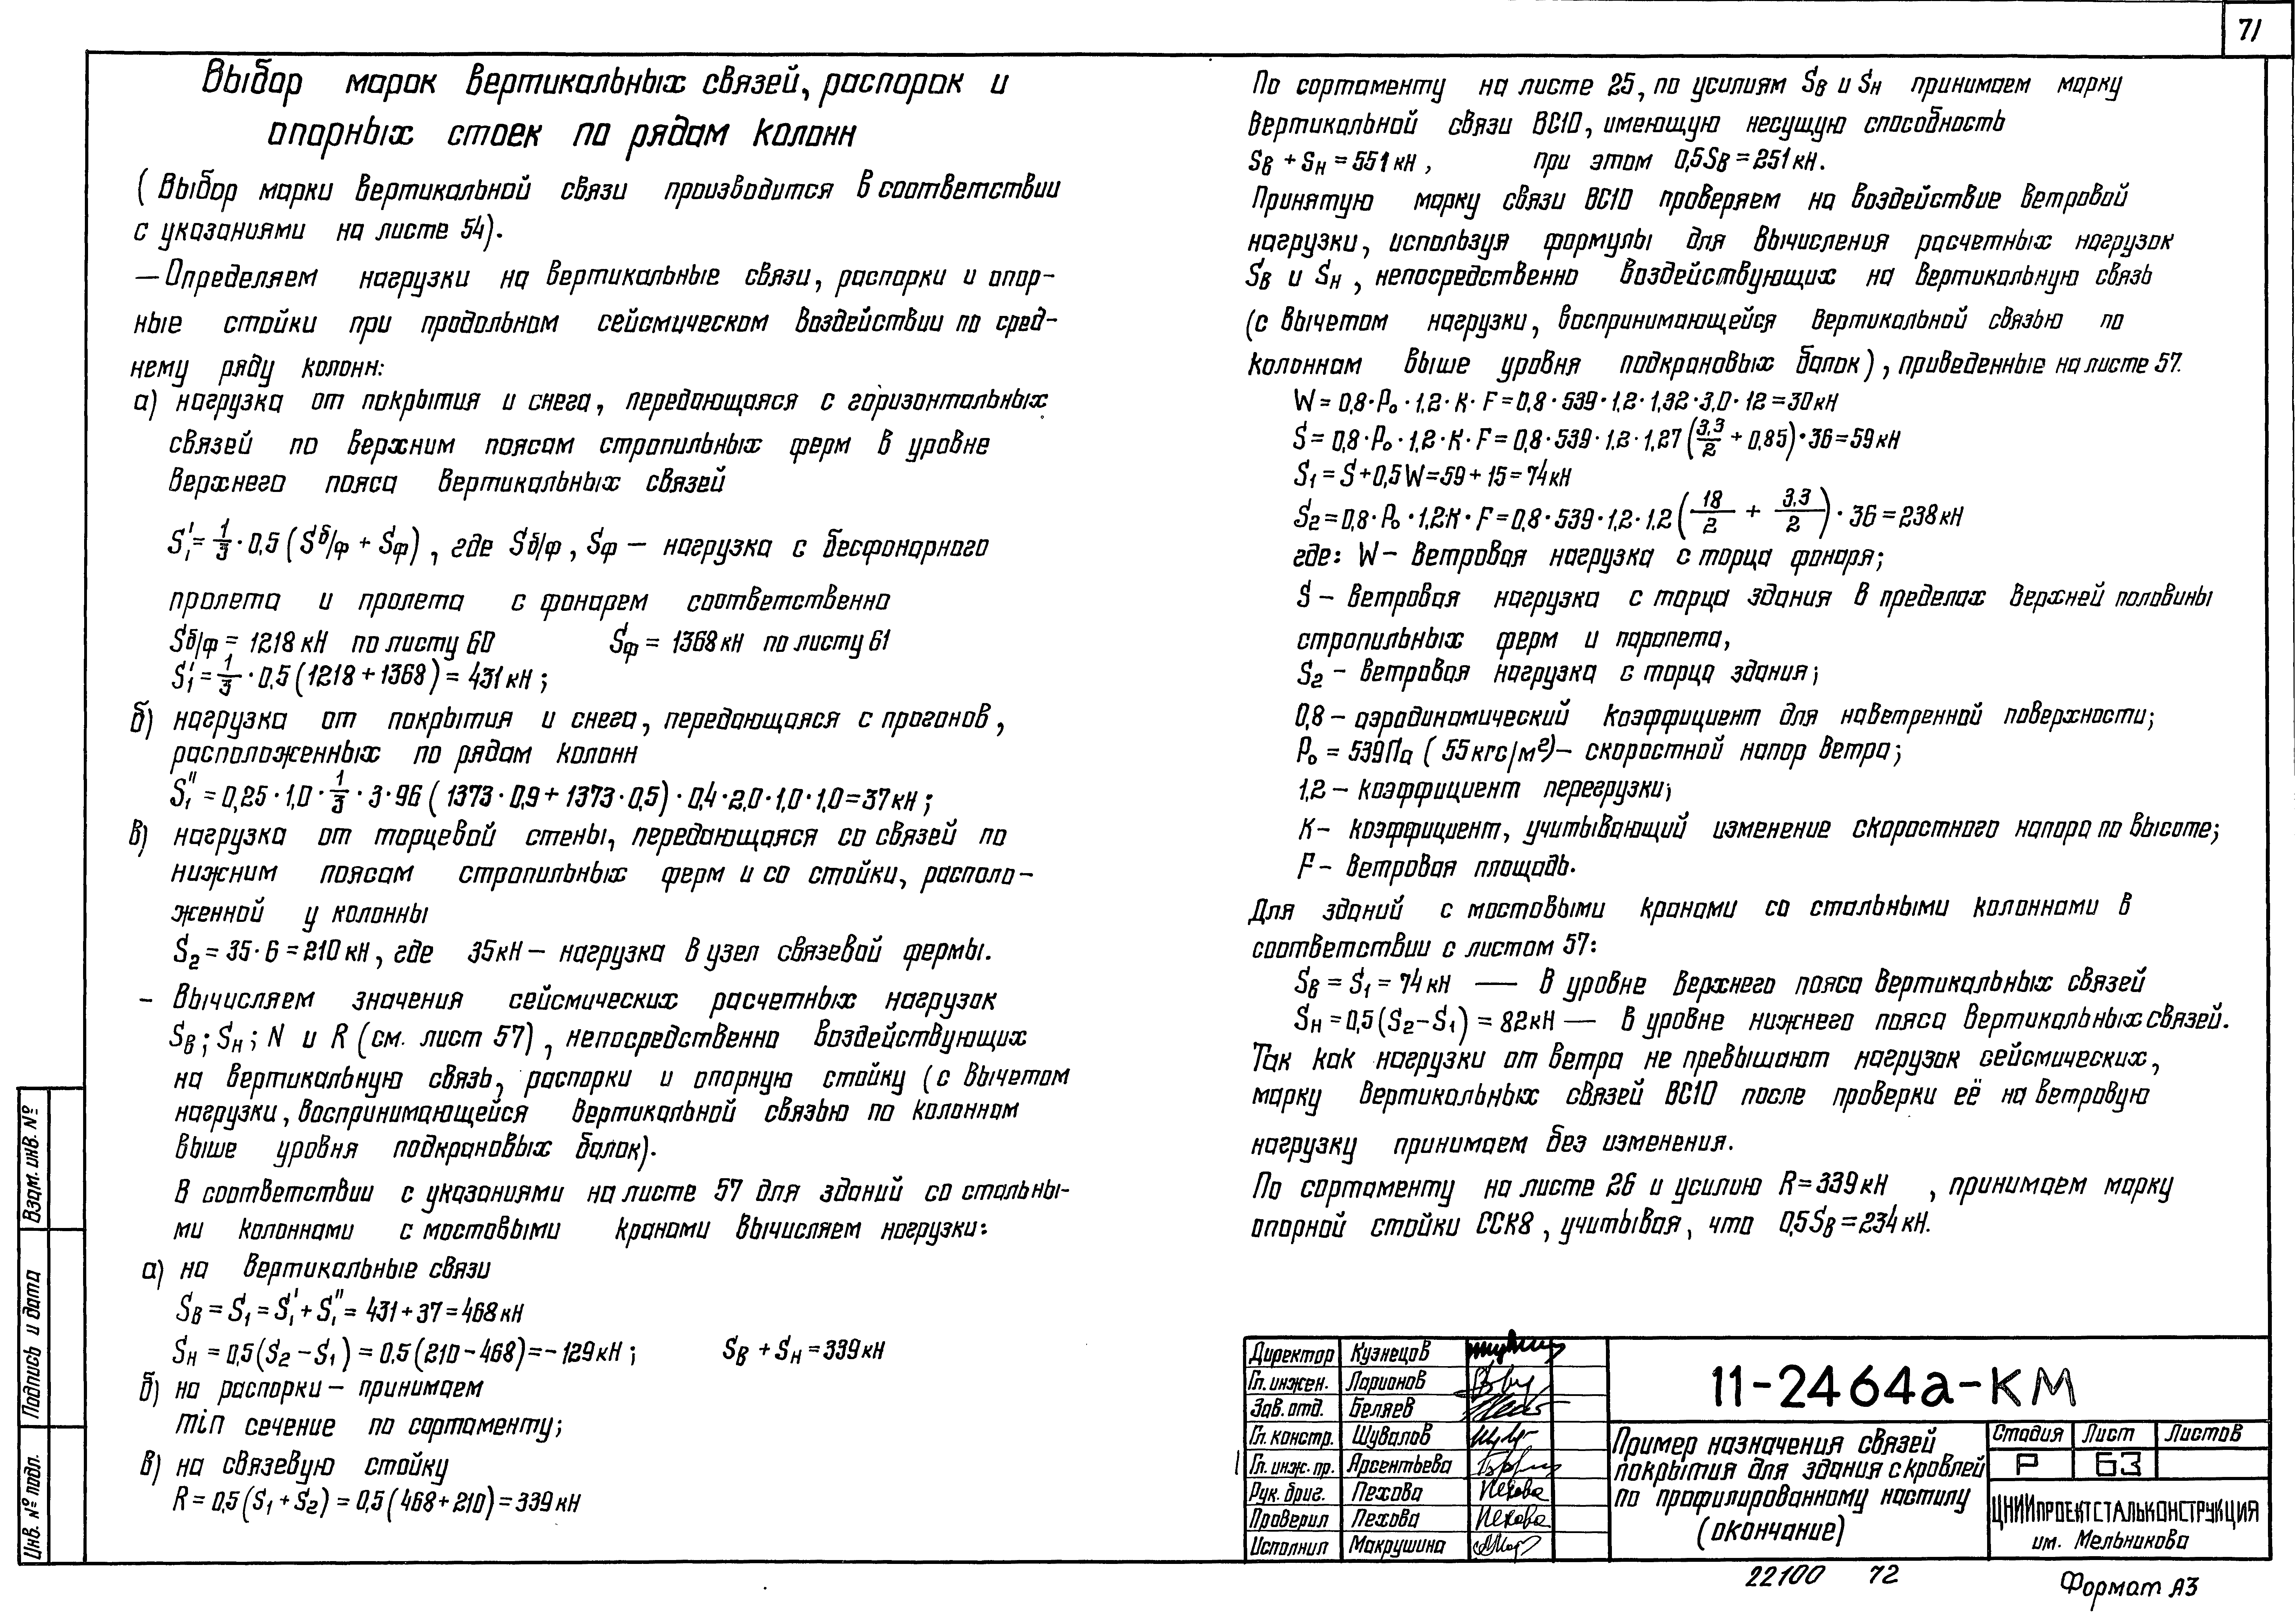 71
Выбор марок вертикальных связей, распорок и
опорных стоек по рядам колонн
(Выбор марки вертикальной связи производится в соответствии
с указаниями на листе 54).
— Определяем нагрузки на вертикальные связи, распорки и опор-
ные стойки при продольном сейсмическом воздействии по сред-
нему ряду колонн:
а) нагрузка от покрытия и снега, передающаяся с горизонтальных
связей по верхним поясам стропильных ферм в уровне
верхнего пояса вертикальных связей
S₁' = 1/3 · 0,5 (Sб/ф + Sф), где Sб/ф, Sф — нагрузка с бесфонарного
пролета и пролета с фонарем соответственно
Sб/ф = 1218 кН по листу 60 Sф = 1368 кН по листу 61
S₁' = 1/3 · 0,5 (1218 + 1368) = 431 кН;
б) нагрузка от покрытия и снега, передающаяся с прогонов,
расположенных по рядам колонн
S₁" = 0,25 · 1,0 · 1/3 · 3 · 96 (1373 · 0,9 + 1373 · 0,5) · 0,4 · 2,0 · 1,0 · 1,0 = 37 кН;
в) нагрузка от торцевой стены, передающаяся со связей по
нижним поясам стропильных ферм и со стойки, располо-
женной у колонны
S₂ = 35 · 6 = 210 кН, где 35 кН — нагрузка в узел связевой фермы.
- Вычисляем значения сейсмических расчетных нагрузок
Sв; Sн; N и R (см. лист 57), непосредственно воздействующих
на вертикальную связь, распорки и опорную стойку (с вычетом
нагрузки, воспринимающейся вертикальной связью по колоннам
выше уровня подкрановых балок).
В соответствии с указаниями на листе 57 для зданий со стальны-
ми колоннами с мостовыми кранами вычисляем нагрузки:
а) на вертикальные связи
Sв = S₁ = S₁' + S₁" = 431 + 37 = 468 кН
Sн = 0,5 (S₂ − S₁) = 0,5 (210 − 468) = − 129 кН; Sв + Sн = 339 кН
б) на распорки — принимаем
min сечение по сортаменту;
в) на связевую стойку
R = 0,5 (S₁ + S₂) = 0,5 (468 + 210) = 339 кН
По сортаменту на листе 25, по усилиям Sв и Sн принимаем марку
вертикальной связи ВС10, имеющую несущую способность
Sв + Sн = 551 кН, при этом 0,5Sв = 251 кН.
Принятую марку связи ВС10 проверяем на воздействие ветровой
нагрузки, используя формулы для вычисления расчетных нагрузок
Sв и Sн, непосредственно воздействующих на вертикальную связь
(с вычетом нагрузки, воспринимающейся вертикальной связью по
колоннам выше уровня подкрановых балок), приведенные на листе 57.
W = 0,8 · Ро · 1,2 · К · F = 0,8 · 539 · 1,2 · 1,32 · 3,0 · 12 = 30 кН
S = 0,8 · Ро · 1,2 · К · F = 0,8 · 539 · 1,2 · 1,27 (3,3/2 + 0,85) · 36 = 59 кН
S₁ = S + 0,5 W = 59 + 15 = 74 кН
S₂ = 0,8 · Ро · 1,2 К · F = 0,8 · 539 · 1,2 · 1,2 (18/2 + 3,3/2) · 36 = 238 кН
где: W — ветровая нагрузка с торца фонаря;
S — ветровая нагрузка с торца здания в пределах верхней половины
стропильных ферм и парапета,
S₂ — ветровая нагрузка с торца здания;
0,8 — аэродинамический коэффициент для наветренной поверхности;
Ро = 539 Па (55 кгс/м²) — скоростной напор ветра;
1,2 — коэффициент перегрузки;
К — коэффициент, учитывающий изменение скоростного напора по высоте;
F — ветровая площадь.
Для зданий с мостовыми кранами со стальными колоннами в
соответствии с листом 57:
Sв = S₁ = 74 кН — в уровне верхнего пояса вертикальных связей
Sн = 0,5 (S₂ − S₁) = 82 кН — в уровне нижнего пояса вертикальных связей.
Так как нагрузки от ветра не превышают нагрузок сейсмических,
марку вертикальных связей ВС10 после проверки её на ветровую
нагрузку принимаем без изменения.
По сортаменту на листе 26 и усилию R = 339 кН, принимаем марку
опорной стойки ССК8, учитывая, что 0,5Sв = 234 кН.
Взам. инв. №
Подпись и дата
Инв. № подл.
Директор Кузнецов
Гл. инжен. Ларионов
Зав. отд. Беляев
Гл. констр. Шувалов
Гл. инж. пр. Арсентьева
Рук. бриг. Пехова Пехова
Проверил Пехова Пехова
Исполнил Макрушина
11-2464а-КМ
Пример назначения связей
покрытия для здания с кровлей
по профилированному настилу
(окончание)
Стадия Лист Листов
Р 63
ЦНИИПРОЕКТСТАЛЬКОНСТРУКЦИЯ
им. Мельникова
22100 72
Формат А3